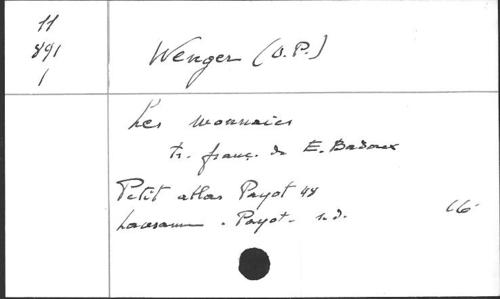 11
891
1
Wenger (O.P.)
Les monnaies
tr. franç. de E. Badoux
Petit atlas Payot 48
Lausanne. Payot. s.d.
16